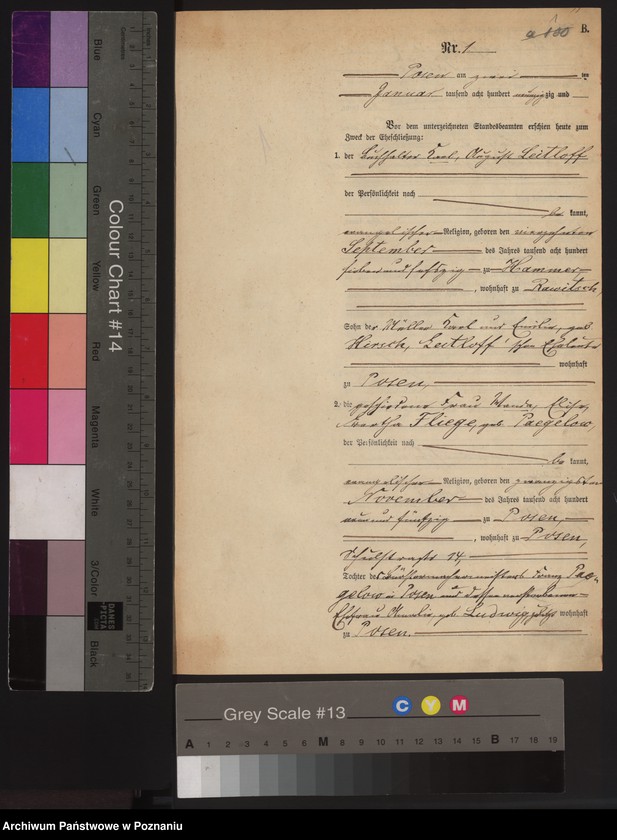 B.
Nr. 1
Posen am zwei ten
Januar tausend acht hundert neunzig und
Vor dem unterzeichneten Standesbeamten erschien heute zum
Zweck der Eheschließung:
1. der Buchhalter Karl, August Leitloff
der Persönlichkeit nach
be kannt,
evangelischer Religion, geboren den vierzehnten
September des Jahres tausend acht hundert
sieben und sechszig zu Hammer
, wohnhaft zu Rawitsch,
Sohn der Müller Karl und Emilie, geb
Hirsch, Leitloff'schen Eheleute
wohnhaft
zu Posen,
2. die geschiedene Frau Wanda, Elise,
Bertha Fliege, geb. Paegelow,
der Persönlichkeit nach
be kannt,
evangelischer Religion, geboren den zwanzigsten
November des Jahres tausend acht hundert
neun und fünfzig zu Posen,
, wohnhaft zu Posen,
Schulstraße 14,
Tochter des Franz Pae-
gelow in Posen und dessen verstorbenen
Ehefrau Amalie, geb. Ludwig, wohnhaft
zu Posen.
Colour Chart #14
Blue
Cyan
Green
Yellow
Red
Magenta
White
3/Color
Black
DANES
-PICTA
Centimetres
Inches
Grey Scale #13
C Y M
A 1 2 3 4 5 6 M 8 9 10 11 12 13 14 15 B 17 18 19
Archiwum Państwowe w Poznaniu